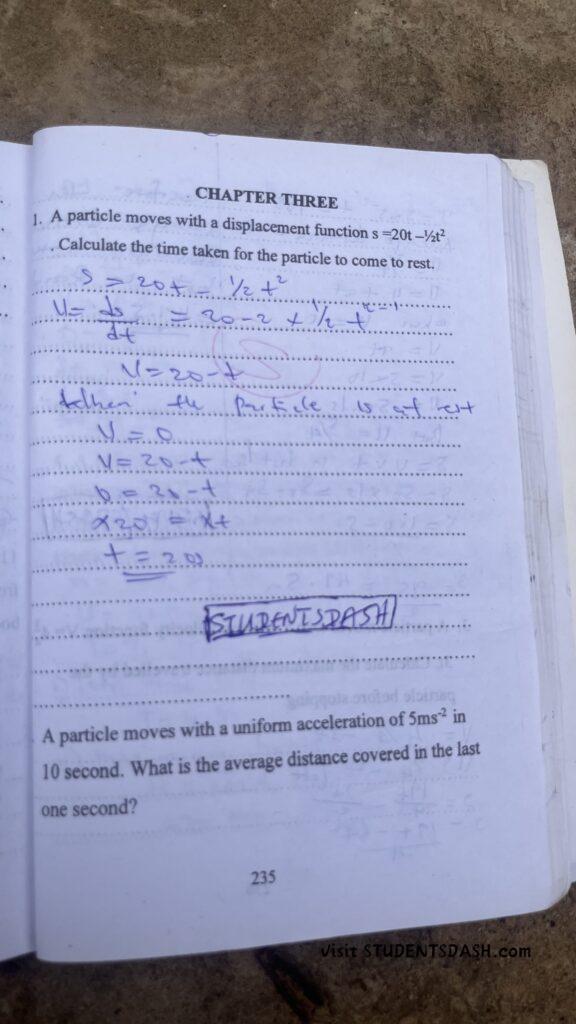 CHAPTER THREE
1. A particle moves with a displacement function s =20t –½t²
. Calculate the time taken for the particle to come to rest.
S = 20t – ½ t²
V = ds/dt = 20 – 2 x ½ t²⁻¹
V = 20 – t
the particle is at rest
V = 0
V = 20 – t
0 = 20 – t
20 = t
t = 20s
STUDENTSDASH
A particle moves with a uniform acceleration of 5ms⁻² in
10 second. What is the average distance covered in the last
one second?
235
Visit STUDENTSDASH.com